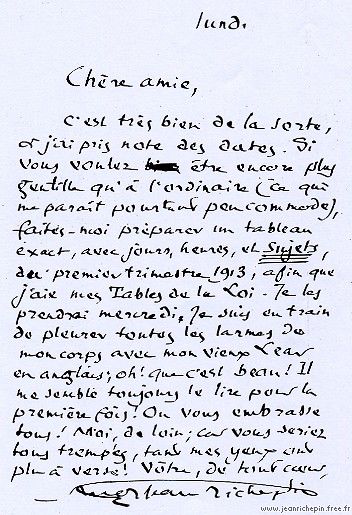 lundi.
Chère amie,
C'est très bien de la sorte,
et j'ai pris note des dates. Si
vous voulez être encore plus
gentille qu'à l'ordinaire (ce qui
me paraît pourtant peu commode),
faites-moi préparer un tableau
exact, avec jours, heures, et Sujets,
du premier trimestre 1913, afin que
j'aie mes Tables de la Loi. Je les
prendrai mercredi. Je suis en train
de pleurer toutes les larmes de
mon corps avec mon vieux Lear
en anglais; oh! que c'est beau! Il
me semble toujours le lire pour la
première fois! On vous embrasse
tous! Moi, de loin; car vous seriez
tous trempés, tant mes yeux ont
plu à verse! Vôtre, de tout cœur,
Jean Richepin
www.jeanrichepin.free.fr